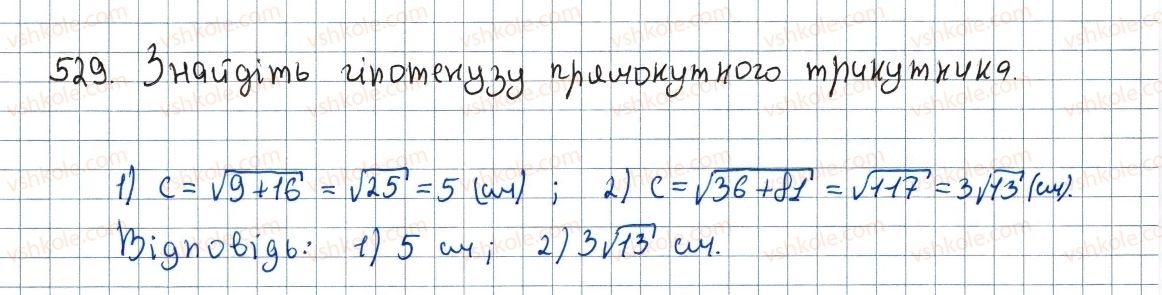 529. Знайдіть гіпотенузу прямокутного трикутника.
1) c = √9+16 = √25 = 5 (см) ; 2) c = √36+81 = √117 = 3√13 (см).
Відповідь: 1) 5 см; 2) 3√13 см.